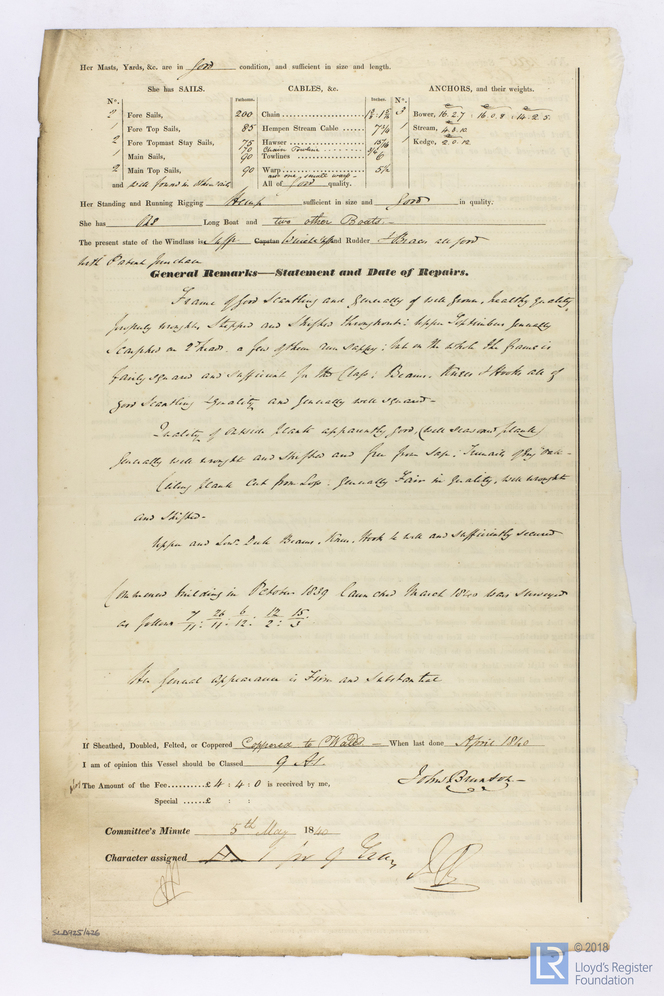 Her Masts, Yards, &c. are in good condition, and sufficient in size and length.
She has SAILS. CABLES, &c. ANCHORS, and their weights.
N°. Fathoms. Inches. N°.
2 Fore Sails, 200 Chain 3 Bower, 16.2.7 16.0.8 14.2.5
1 Fore Top Sails, 85 Hempen Stream Cable 7 3/4 1 Stream, 4.3.12
2 Fore Topmast Stay Sails, 75 Hawser 1 Kedge, 2.0.12
170 Chain Towline
1 Main Sails, 90 Towlines 6
2 Main Top Sails, 90 Warp 5 1/2
and one small warp
and well found in other sails All of good quality.
Her Standing and Running Rigging Hemp sufficient in size and good in quality.
She has One Long Boat and two other Boats
The present state of the Windlass is Capstan Winch and Rudder & Braces all good
with Patent
General Remarks—Statement and Date of Repairs.
Frame of good Scantling and generally of well grown, healthy quality,
properly wrought, Stepped and Shifted throughout: upper Toptimbers generally
Scarphed on 2 heads. a few of them run sappy: but on the whole the frame is
fairly squared and sufficient for the Class: Beams. Knees & Hooks all of
good Scantling & quality and generally well squared-
Quality of outside plank apparently good, (well seasoned plank)
generally well wrought and shifted and free from sap: Treenails of Eng oak-
Ceiling plank cut from generally Fair in quality, well wrought
and shifted-
Upper and Lowr. Deck Beams. Knees, Hooks & well and sufficiently secured
Commenced building in October 1839 launched March 1840 was surveyed
as follows 7/11: 26/11: 6/12: 12/2: 15/3:
Her general appearance is Firm and Substantial
If Sheathed, Doubled, Felted, or Coppered Coppered to Wales — When last done April 1840
I am of opinion this Vessel should be Classed 9 A1
The Amount of the Fee.........£ 4 : 4 : 0 is received by me, John Brunton-
Special ......£ : :
Committee's Minute 5th May 1840
Character assigned A 1 for 9 Years
SLD925/426
© 2018
LR
Lloyd's Register
Foundation